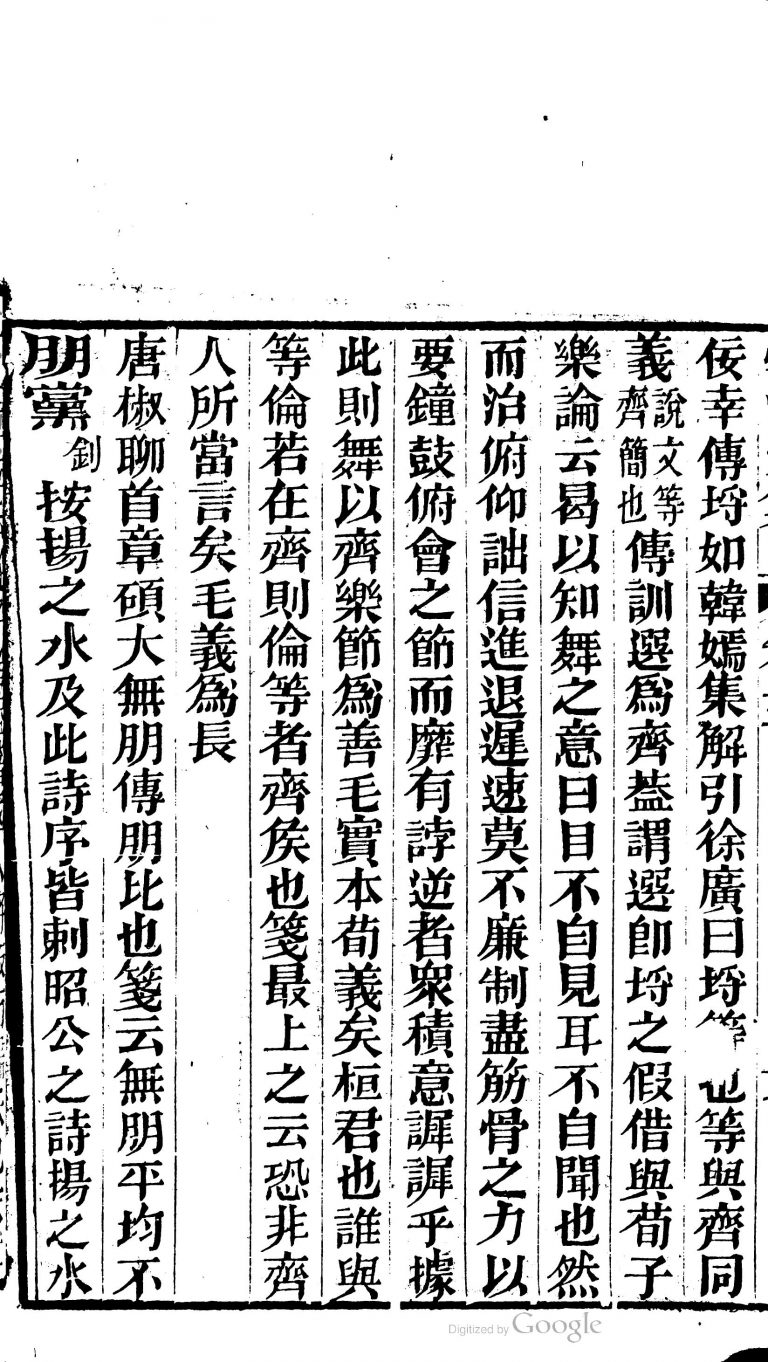 佞幸傳埒如韓嫣集解引徐廣曰埒等也等與齊同
義說文等齊簡也傳訓選爲齊葢謂選卽埒之假借與荀子
樂論云曷以知舞之意曰目不自見耳不自聞也然
而治俯仰詘信進退遲速莫不廉制盡筋骨之力以
要鐘鼓俯會之節而靡有誖逆者衆積意謘謘乎據
此則舞以齊樂節爲善毛實本荀義矣桓君也誰與
等倫若在齊則倫等者齊侯也箋最上之云恐非齊
人所當言矣毛義爲長
唐椒聊首章碩大無朋傳朋比也箋云無朋平均不
朋黨釗按揚之水及此詩序皆刺昭公之詩揚之水
Digitized by Google